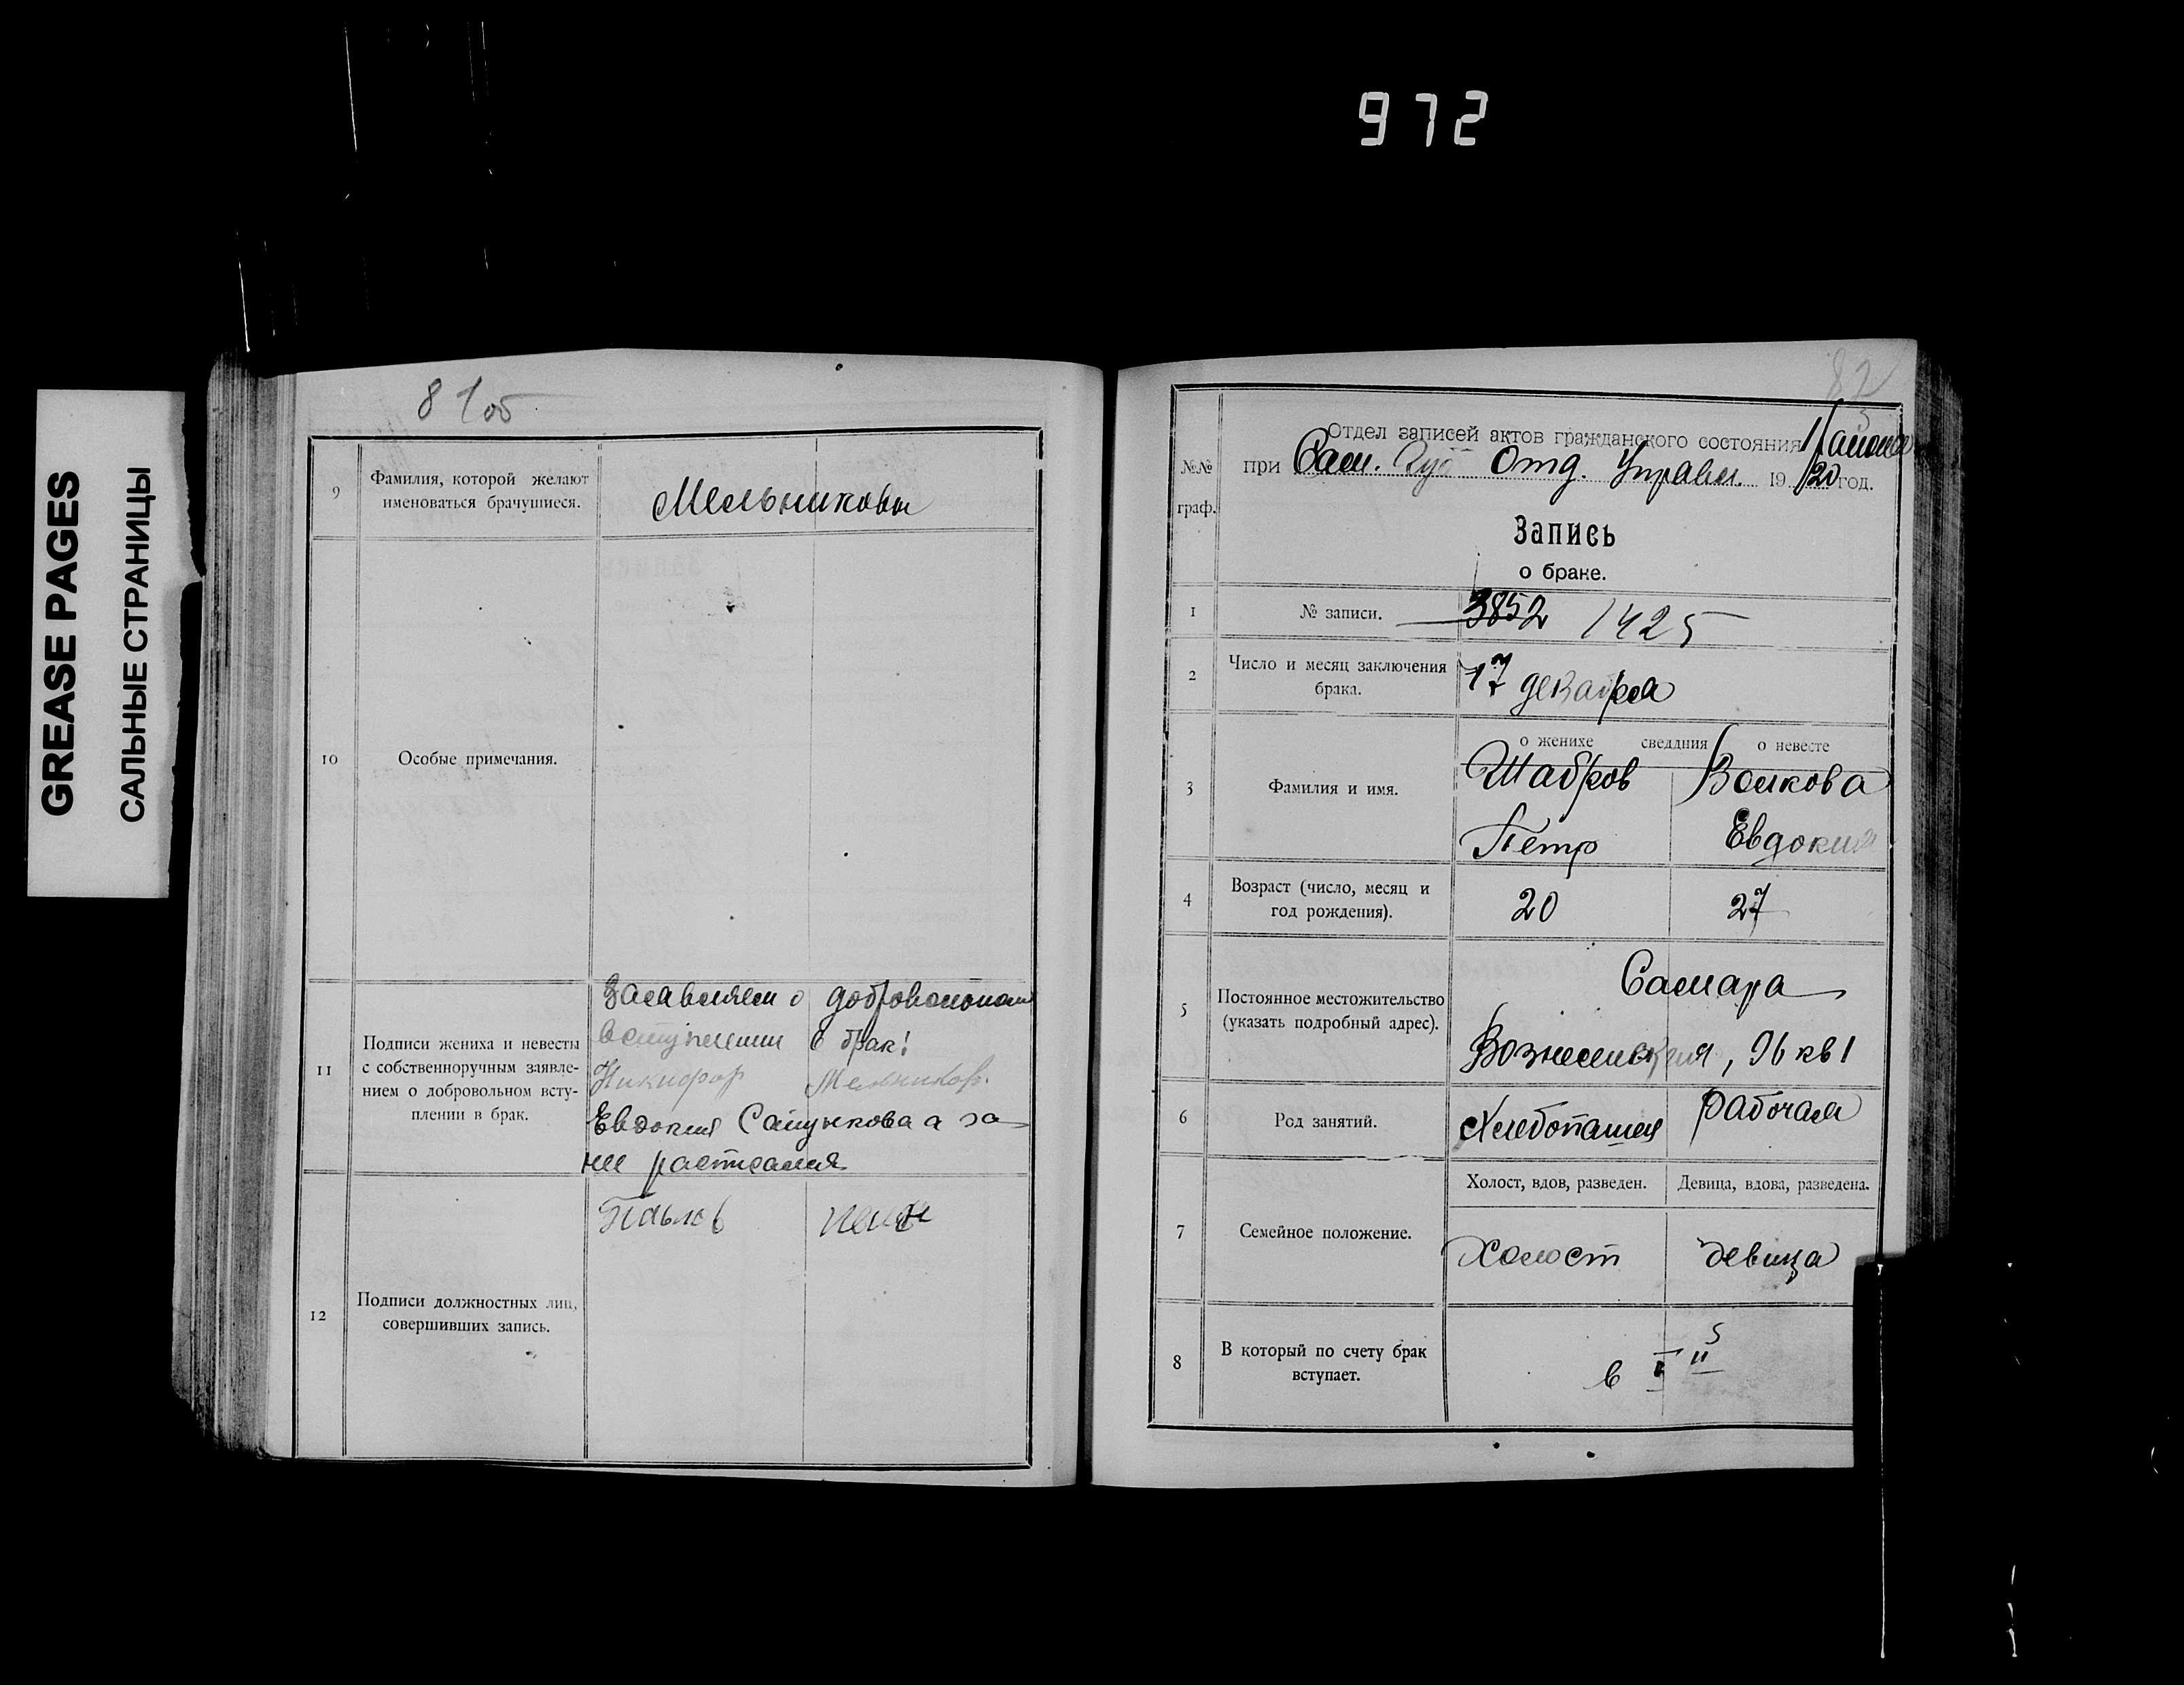 972
GREASE PAGES
САЛЬНЫЕ СТРАНИЦЫ
81об
9
Фамилия, которой желают
именоваться брачущиеся.
Мельниковы
10
Особые примечания.
11
Подписи жениха и невесты
с собственноручным заявле-
нием о добровольном всту-
плении в брак.
Заявляем о добровольном
вступлении в брак!
Никифор Мельников.
Евдокия а за
нее расписался
12
Подписи должностных лиц,
совершивших запись.
Павлов
82
№№
граф.
Отдел записей актов гражданского состояния
при Сам. Губ Отд. Управл. 1920 год.
Запись
о браке.
1
№ записи.
3852 1425
2
Число и месяц заключения
брака.
17 декабря
3
Фамилия и имя.
о женихе сведдния о невесте
Шабров Волкова
Петр Евдокия
4
Возраст (число, месяц и
год рождения).
20 27
5
Постоянное местожительство
(указать подробный адрес).
Самара
Вознесенская, 96 кв 1
6
Род занятий.
Хлебопашец Рабочая
7
Семейное положение.
Холост, вдов, разведен. Девица, вдова, разведена.
Холост девица
8
В который по счету брак
вступает.
в I